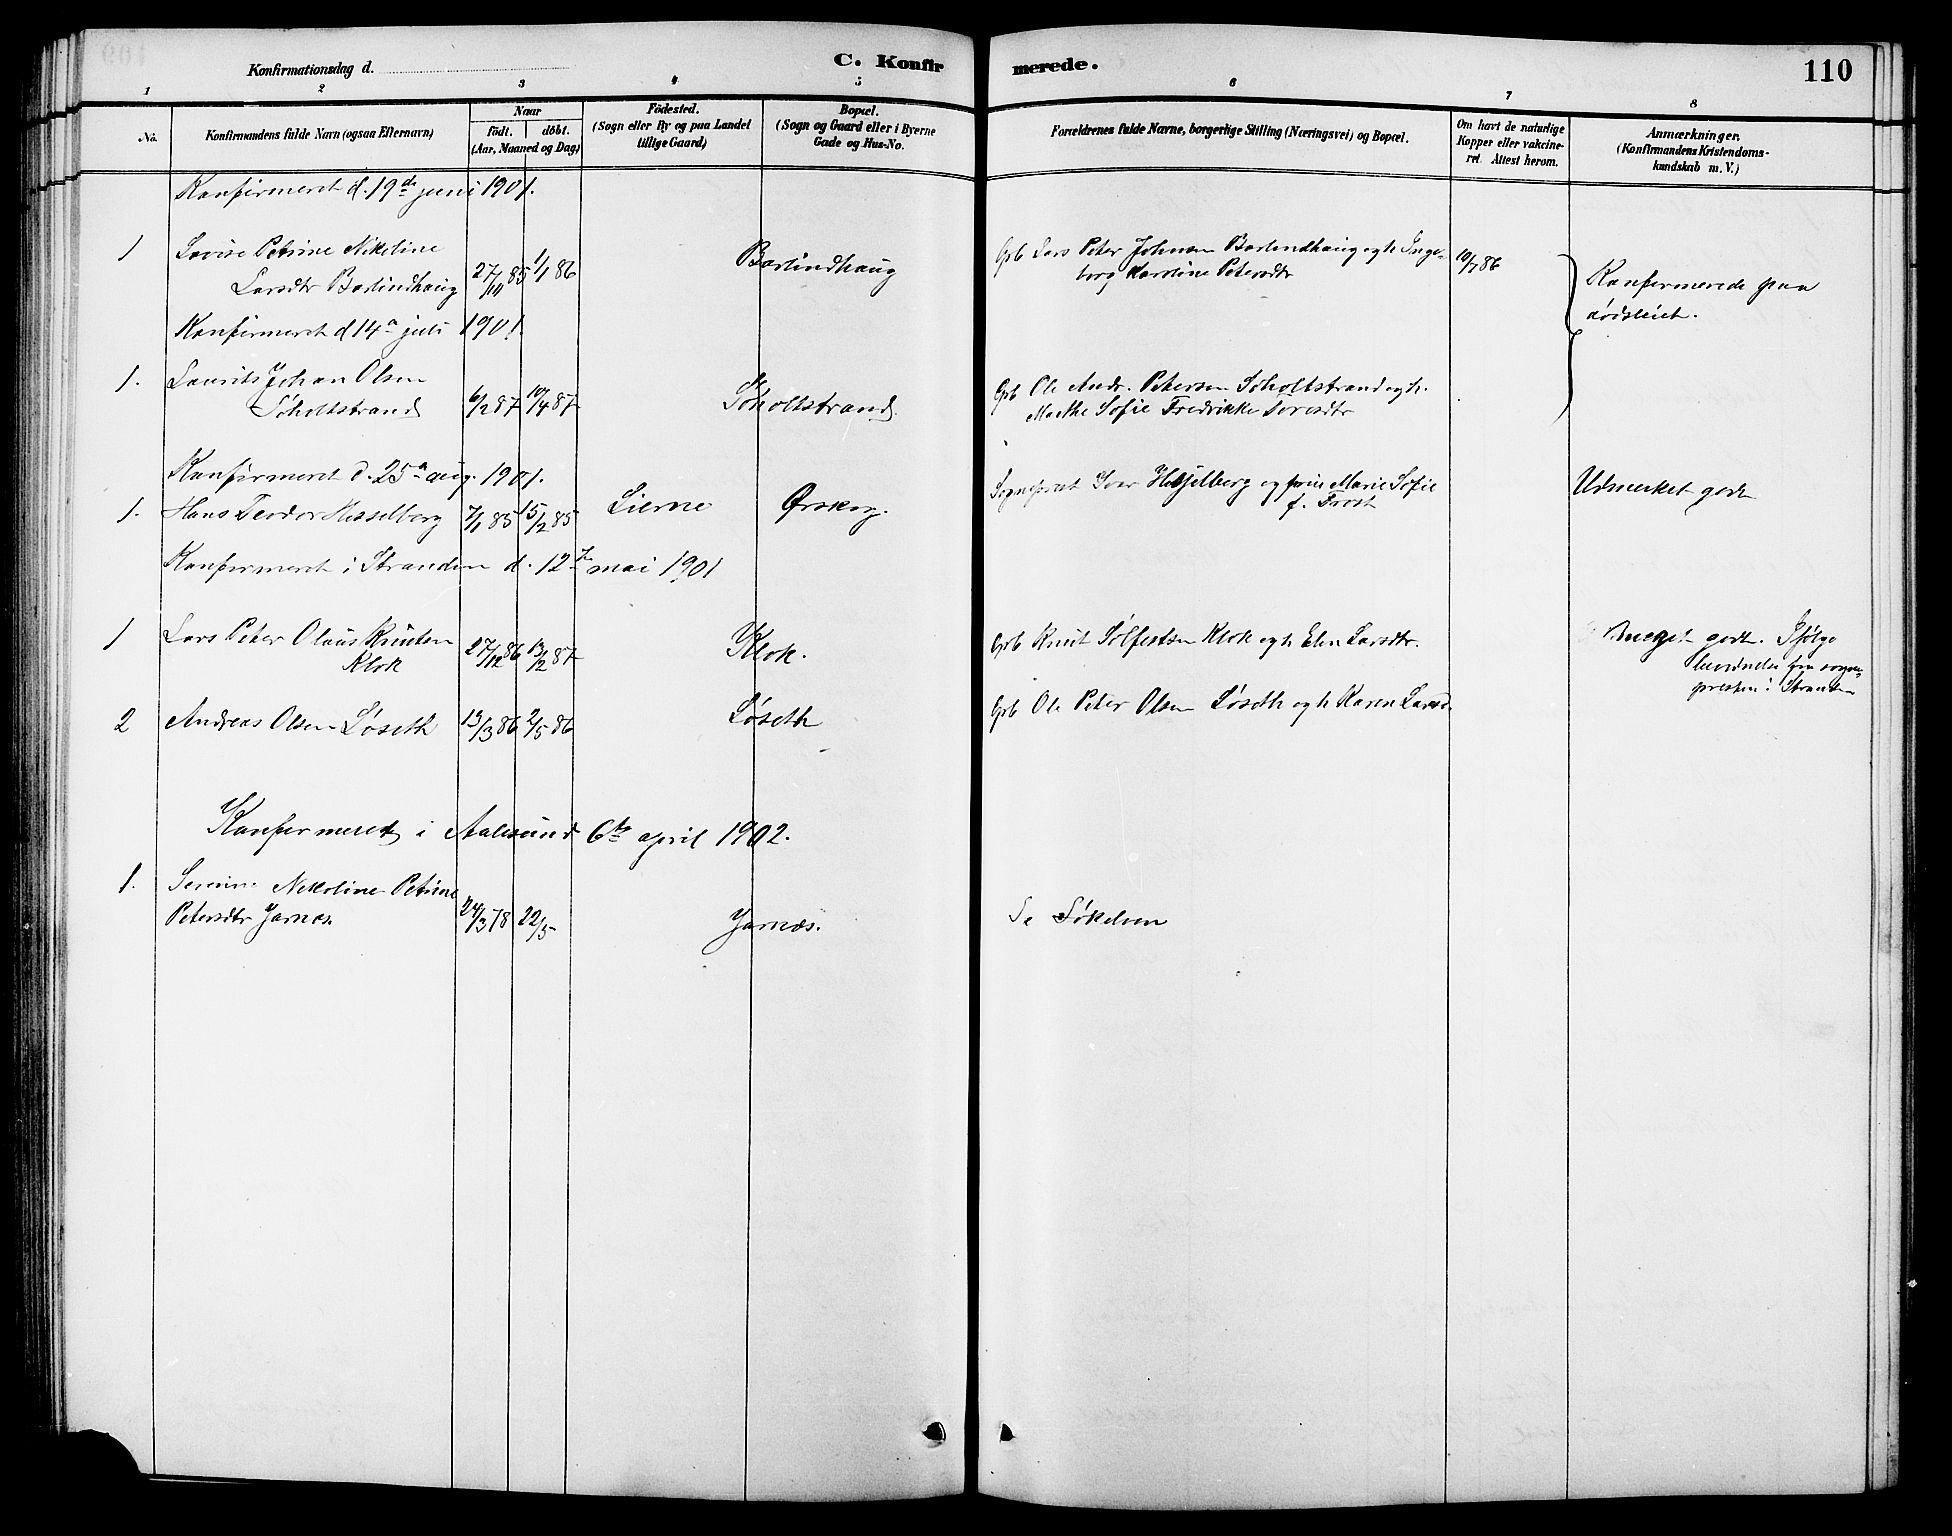 Konfirmationsdag d.
C. Konfirmerede.
110
1 2 3 4 5 6 7 8
No.
Konfirmandens fulde Navn (ogsaa Efternavn)
Naar
födt. döbt.
(Aar, Maaned og Dag)
Födested.
(Sogn eller By og paa Landet
tillige Gaard)
Bopæl.
(Sogn og Gaard eller i Byerne
Gade og Hus-No.
Forældrenes fulde Navne, borgerlige Stilling (Næringsvei) og Bopæl.
Om havt de naturlige
Kopper eller vakcine-
ret. Attest herom.
Anmærkninger.
(Konfirmandens Kristendoms-
kundskab m. V.)
Konfirmeret d. 19de juni 1901.
1 Lovise Petrine Nikoline
Larsdtr Barlindhaug 27/11 85 1/1 86 Barlindhaug
Grb Lars Peter Johnsen Barlindhaug og h Inge-
borg Karoline Petersdtr
10/7 86
Konfirmerede paa
dødsleiet.
Konfirmeret d 14de juli 1901.
1. Laurits Johan Olsen
Søholtstrand 6/2 87 10/4 87 Søholtstrand.
Grb Ole Andr. Petersen Søholtstrand og h.
Marthe Sofie Fredrikke
Konfirmeret d. 25de aug. 1901.
1. Hans Teodor Hesselberg 7/1 85 15/2 85 Lierne Ørskog.
Sogneprest Ivar og frue Marie Sofie
f. Frost
Udmerket godt
Konfirmeret i Stranden d. 12te mai 1901
1 Lars Peter Olaus Knutsen
Klok 27/12 86 13/2 87 Klok.
Grb Knut Sølfestsen Klok og h Elen Larsdtr.
Meget godt. Ifølge
fra sogne-
presten i Stranden
2 Andreas Olsen Løseth 13/3 86 2/5 86 Løseth
Grb Ole Peter Olsen Løseth og h Karen Larsd.
Konfirmeret i Aalesund 6te april 1902.
1. Nikoline Petrine
Petersdtr Jarnæs. 24/3 78 22/5 Jarnæs.
Se Søkelven